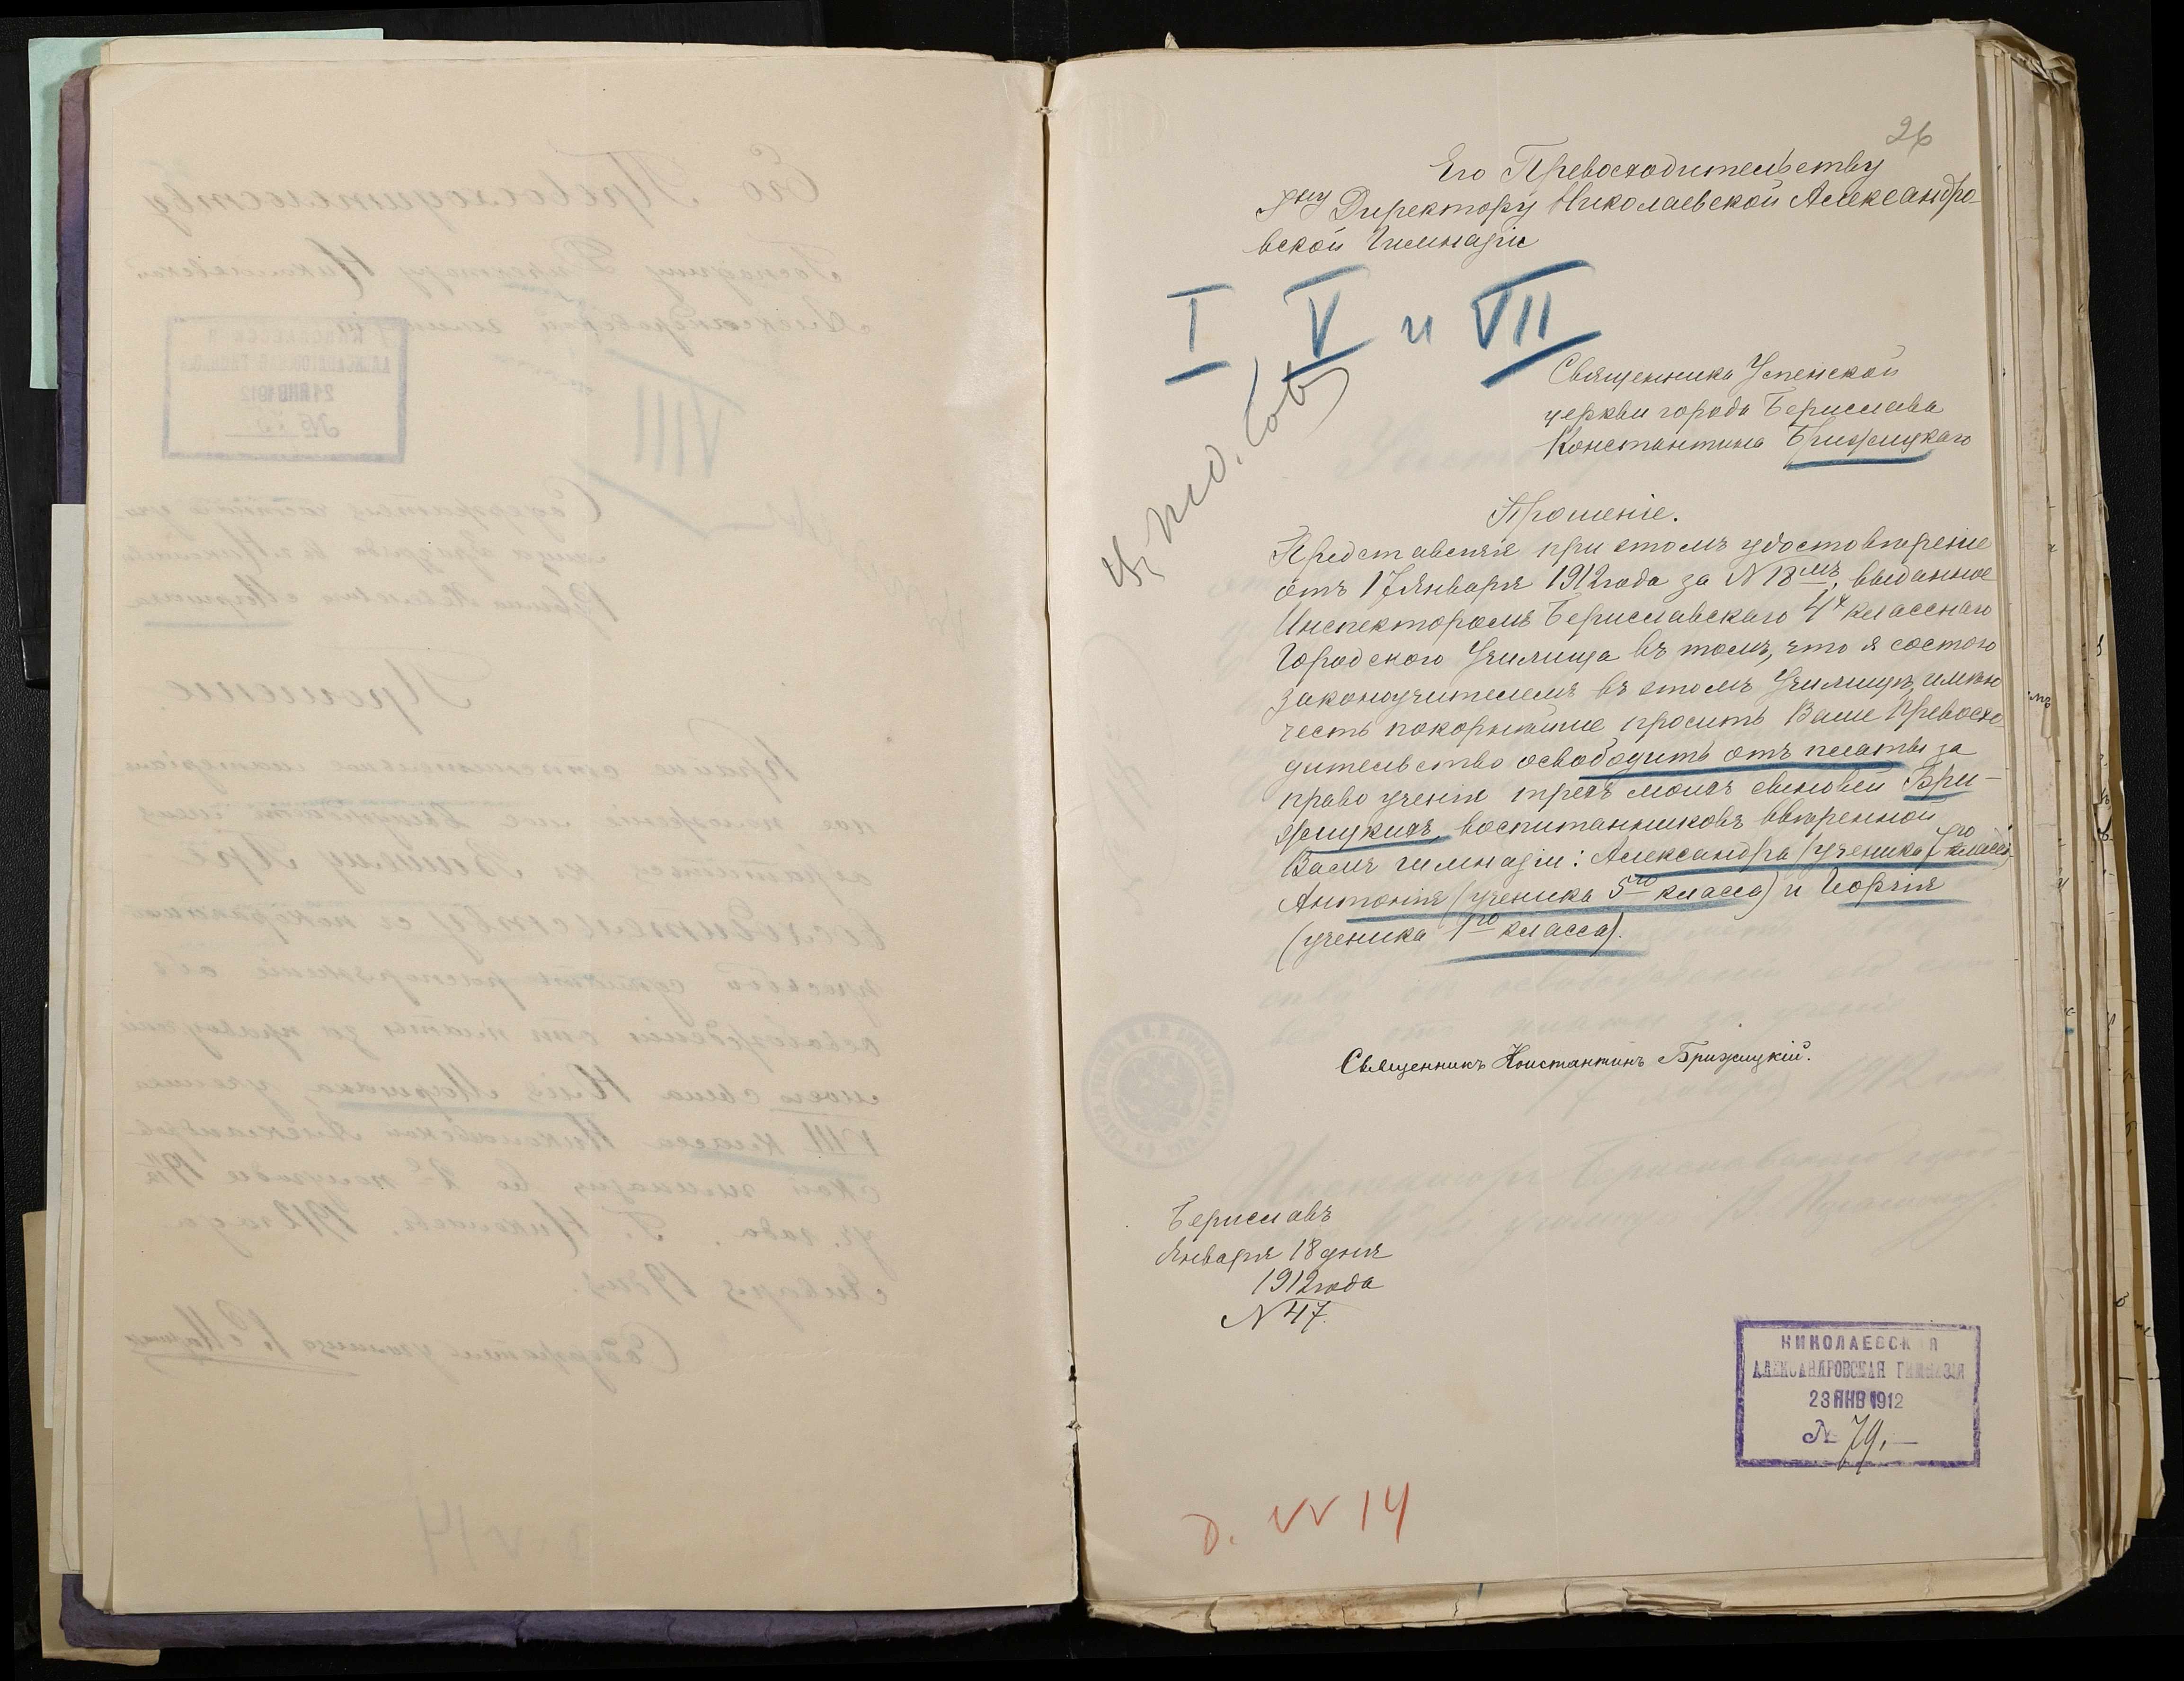 26
Его Превосходительству
Г<sup>ну</sup> Директору Николаевской Александро-
вской Гимназіи
I, V и VII
Священника Успенской
церкви города Берислава
Константина Брижицкаго
Прошеніе.
Представляя при этомъ удостовѣреніе
отъ 17 Января 1912 года за N 18<sup>мъ</sup>, выданное
Инспекторомъ Бериславскаго 4<sup>х</sup> класснаго
Городского Училища въ томъ, что я состою
законоучителемъ въ этомъ Училищѣ, имѣю
честь покорнѣйше просить Ваше Превосхо
дительство освободить отъ платы за
право ученія трехъ моихъ сыновей Бри-
жицкихъ, воспитанниковъ ввѣренной
Вамъ гимназіи: Александра (ученика 7<sup>го</sup> класса),
Антонія (ученика 5<sup>го</sup> класса) и Георгія
(ученика 1<sup>го</sup> класса).
Священникъ Константинъ Брижицкій.
Бериславъ
Января 18 дня
1912 года
N 47.
НИКОЛАЕВСКАЯ
АЛЕКСАНДРОВСКАЯ ГИМНАЗІЯ
23 ЯНВ 1912
№ 79.
д. N 14